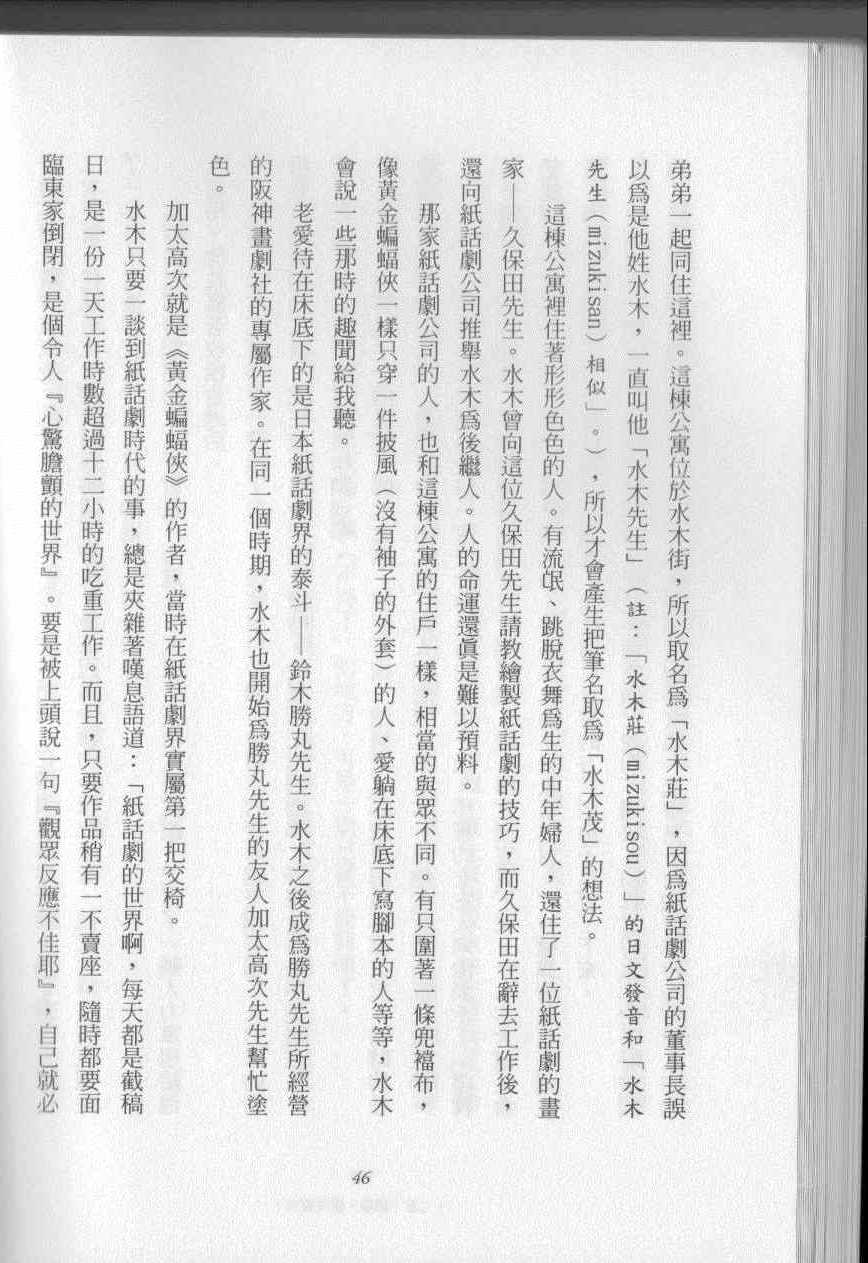 弟弟一起同住這裡。這棟公寓位於水木街，所以取名爲「水木莊」，因爲紙話劇公司的董事長誤
以爲是他姓水木，一直叫他「水木先生」（註：「水木莊（mizukisou）」的日文發音和「水木
先生（mizukisan）相似」。），所以才會產生把筆名取爲「水木茂」的想法。
這棟公寓裡住著形形色色的人。有流氓、跳脫衣舞爲生的中年婦人，還住了一位紙話劇的畫
家——久保田先生。水木曾向這位久保田先生請教繪製紙話劇的技巧，而久保田在辭去工作後，
還向紙話劇公司推舉水木爲後繼人。人的命運還眞是難以預料。
那家紙話劇公司的人，也和這棟公寓的住戶一樣，相當的與眾不同。有只圍著一條兜襠布，
像黃金蝙蝠俠一樣只穿一件披風（沒有袖子的外套）的人、愛躺在床底下寫腳本的人等等，水木
會說一些那時的趣聞給我聽。
老愛待在床底下的是日本紙話劇界的泰斗——鈴木勝丸先生。水木之後成爲勝丸先生所經營
的阪神畫劇社的專屬作家。在同一個時期，水木也開始爲勝丸先生的友人加太高次先生幫忙塗
色。
加太高次就是《黃金蝙蝠俠》的作者，當時在紙話劇界實屬第一把交椅。
水木只要一談到紙話劇時代的事，總是夾雜著嘆息語道：「紙話劇的世界啊，每天都是截稿
日，是一份一天工作時數超過十二小時的吃重工作。而且，只要作品稍有一不賣座，隨時都要面
臨東家倒閉，是個令人『心驚膽顫的世界』。要是被上頭說一句『觀眾反應不佳耶』，自己就必
46